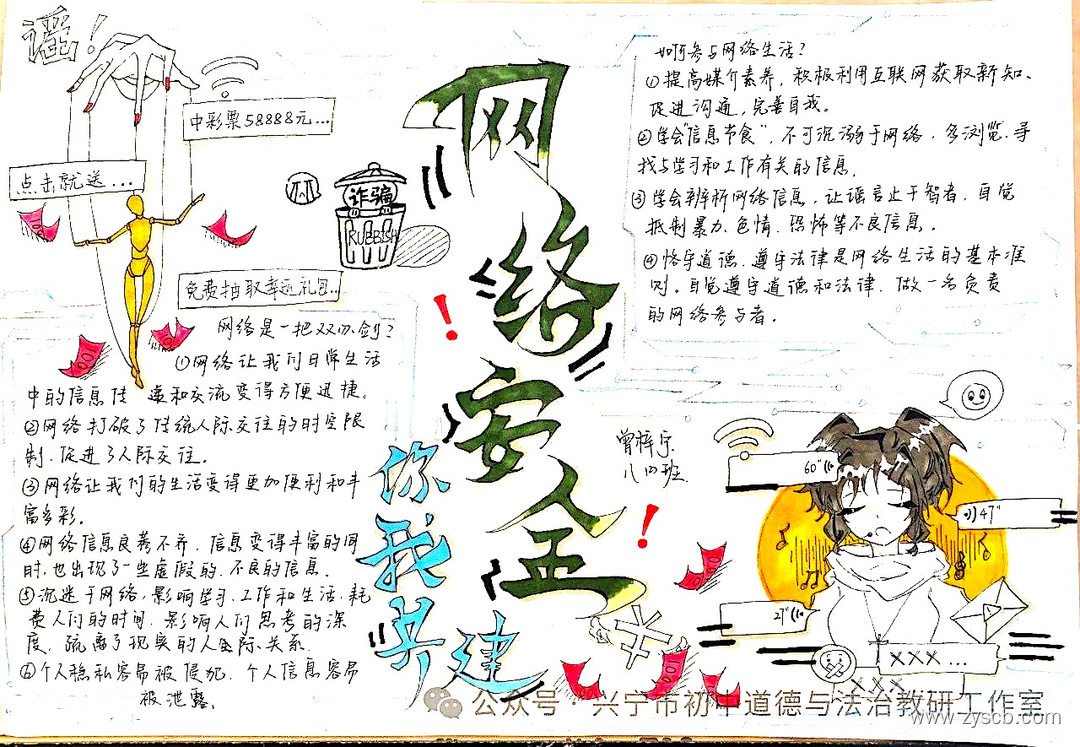 谣!
中彩票58888元...
点击就送...
诈骗
RUBBISH
免费抽取幸运礼包...
网络是一把双刃剑?
①网络让我们日常生活
中的信息传 递和交流变得方便迅捷。
②网络打破了传统人际交往的时空限
制,促进了人际交往。
③网络让我们的生活变得更加便利和丰
富多彩。
④网络信息良莠不齐,信息变得丰富的同
时,也出现了一些虚假的、不良的信息。
⑤沉迷于网络,影响学习、工作和生活,耗
费人们的时间,影响人们思考的深
度,疏离了现实的人际关系。
⑥个人稳私容易被侵犯,个人信息容易
被泄露。
网络安全
你我共建
如何参与网络生活?
①提高媒介素养,积极利用互联网获取新知、
促进沟通,完善自我。
②学会"信息节食",不可沉溺于网络,多浏览、寻
找与学习和工作有关的信息。
③学会辨析网络信息,让谣言止于智者,自觉
抵制暴力、色情、恐怖等不良信息。
④恪守道德、遵守法律是网络生活的基本准
则。自觉遵守道德和法律,做一名负责
的网络参与者。
曾梓宁
八四班
60"
47"
27"
×××...
×××
公众号·兴宁市初中道德与法治教研工作室
www.zyscb.com